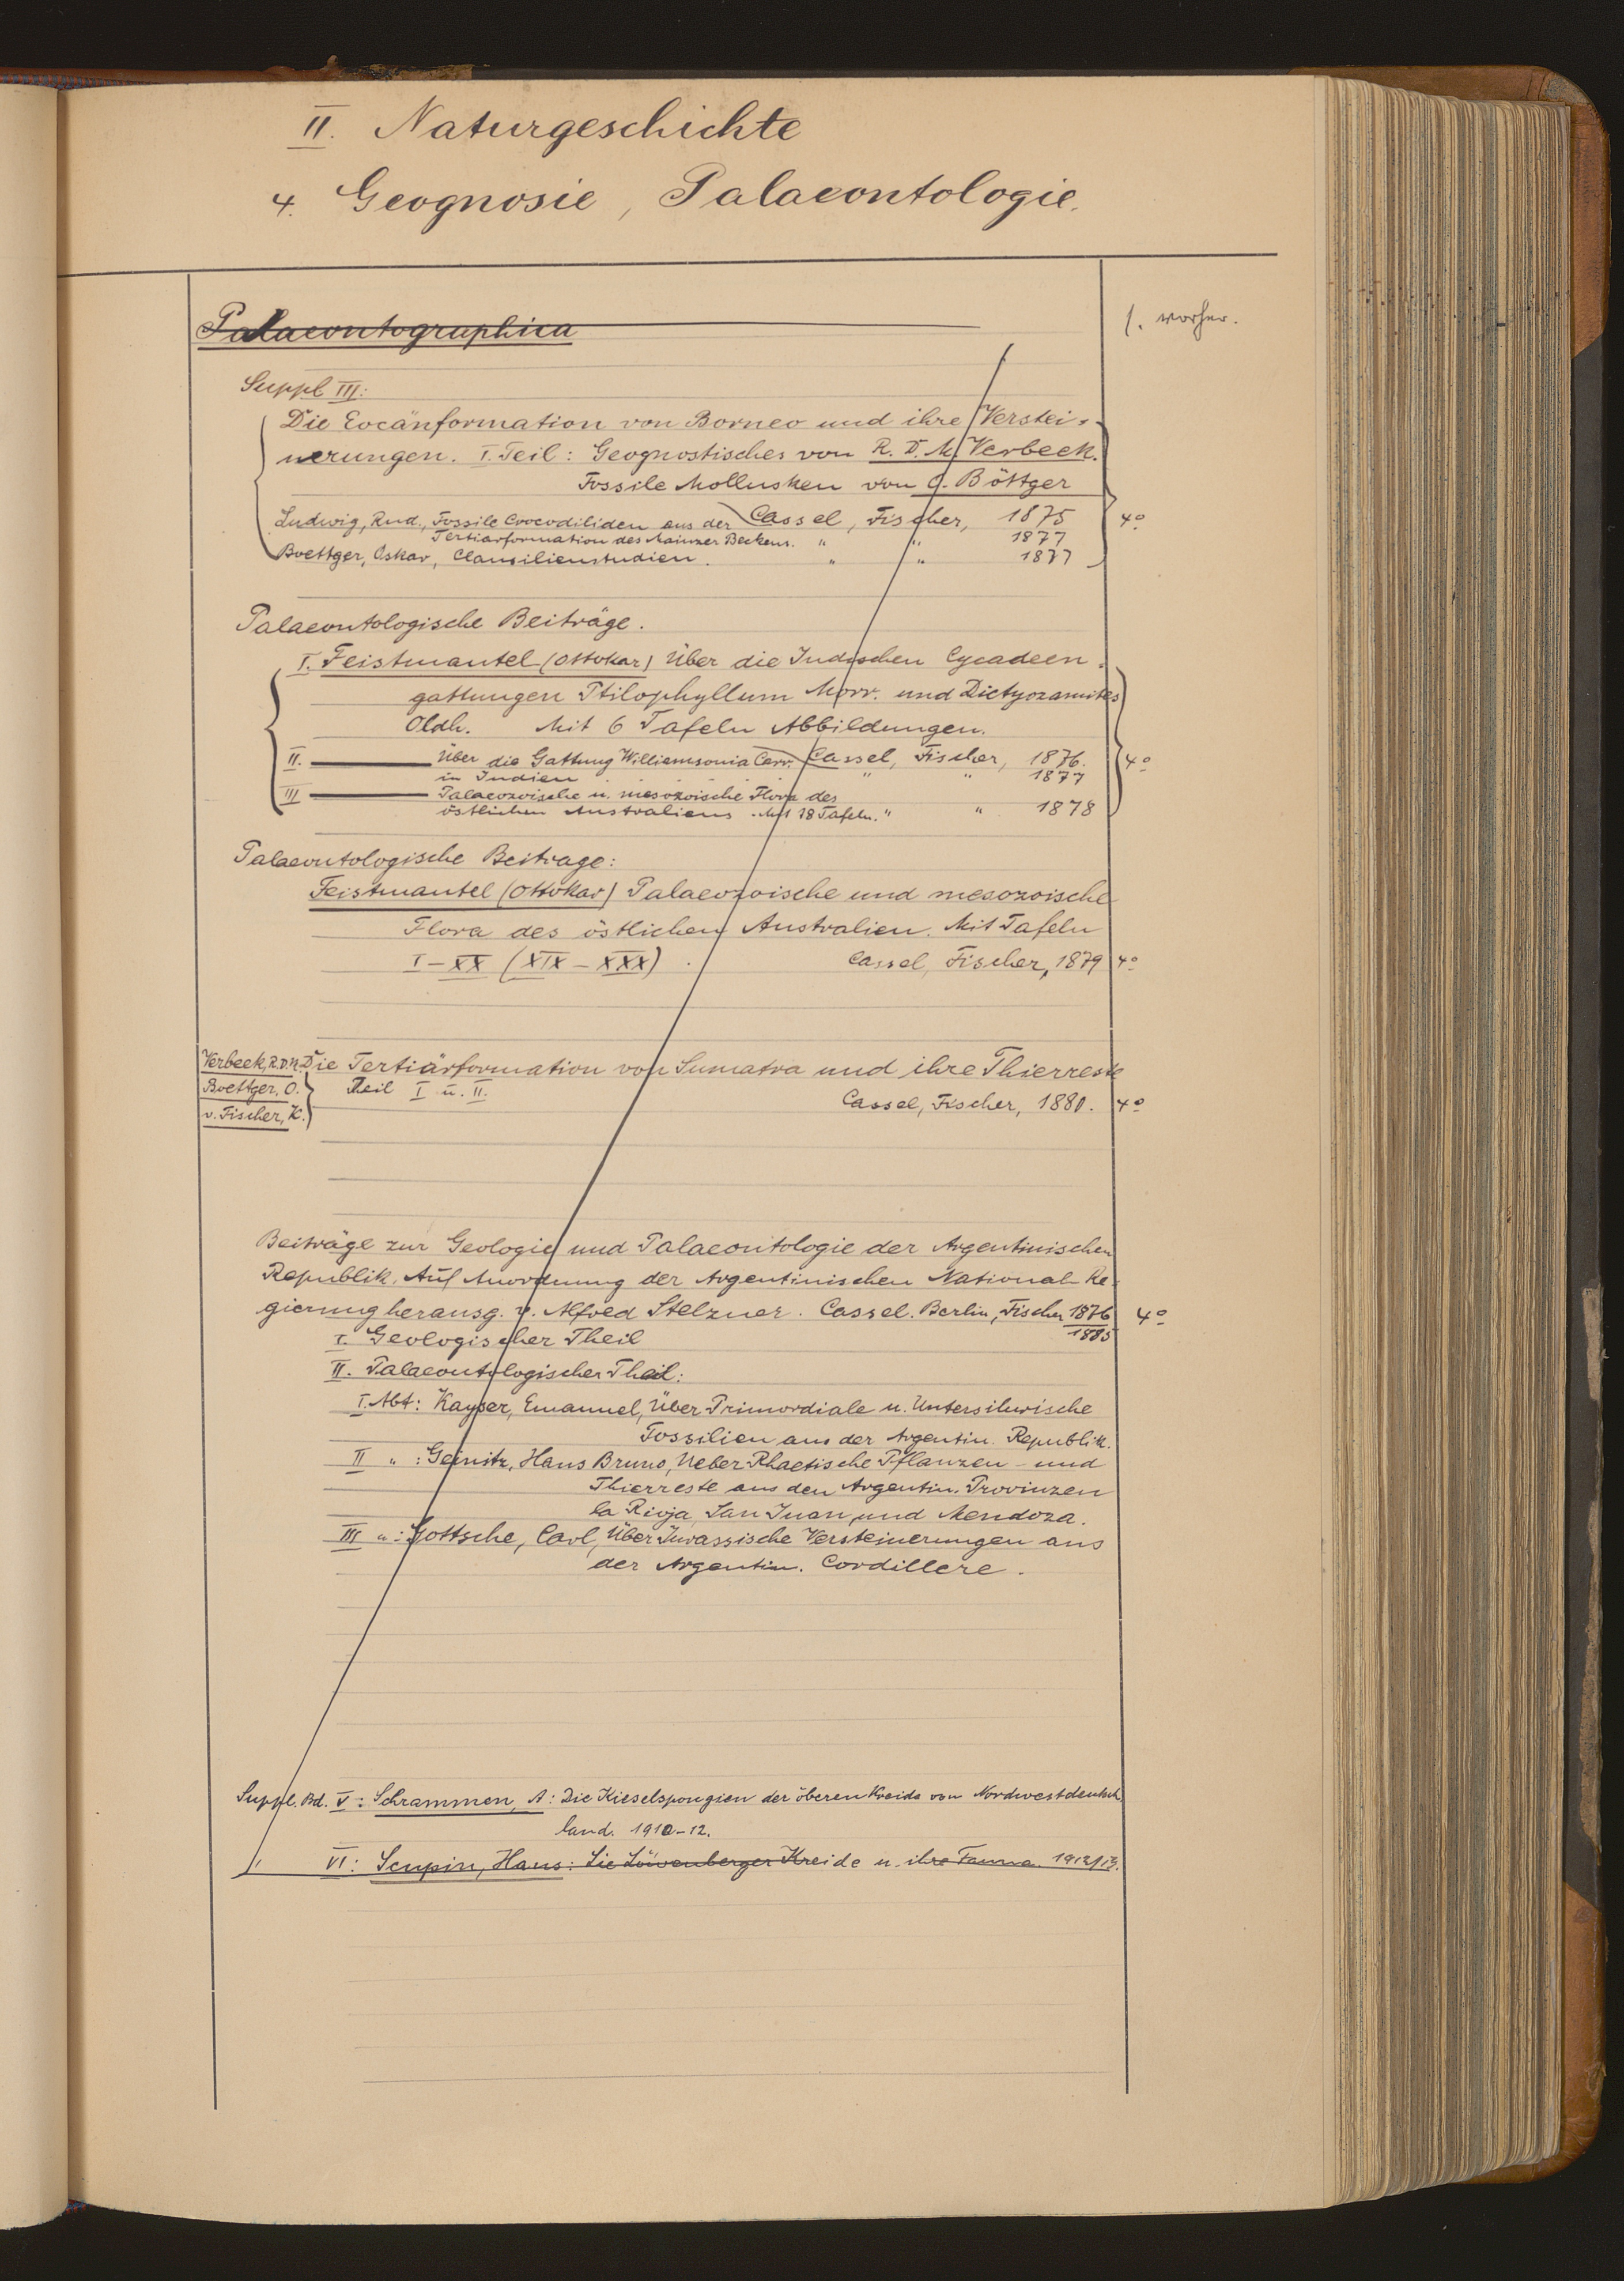 II. Naturgeschichte
4. Geognosie, Palaeontologie.
Palaeontographica
s. vorher.
Suppl III:
Die Eocänformation von Borneo und ihre Verstei-
nerungen. I. Teil: Geognostisches von R. D. M. Verbeek.
Fossile Mollusken von O. Böttger
Cassel, Fischer, 1875 4°
Ludwig, Rud., Fossile Crocodiliden aus der
Tertiärformation des Mainzer Beckens. " " 1877
Boettger, Oskar, Clausilienstudien. " " 1877
Palaeontologische Beiträge.
I. Feistmantel (Ottokar) Über die Indischen Cycadeen-
gattungen Ptilophyllum Morr. und Dictyozamites
Oldh. Mit 6 Tafeln Abbildungen.
Cassel, Fischer, 1876. 4°
II. ——— Über die Gattung Williamsonia Carr.
in Indien " " 1877
III ——— Palaeozoische u. mesozoische Flora des
östlichen Australiens. Mit 18 Tafeln. " " 1878
Palaeontologische Beitrage:
Feistmantel (Ottokar) Palaeozoische und mesozoische
Flora des östlichen Australien. Mit Tafeln
I–XX (XIX–XXX). Cassel, Fischer, 1879 4°
Verbeek, R.D.M. Die Tertiärformation von Sumatra und ihre Thierreste
Boettger, O. Theil I u. II.
Cassel, Fischer, 1880. 4°
v. Fischer, K.
Beiträge zur Geologie und Palaeontologie der Argentinischen
Republik. Auf Anordnung der Argentinischen National-Re-
gierung herausg. v. Alfred Stelzner. Cassel. Berlin, Fischer 1876 4°
I. Geologischer Theil 1885
II. Palaeontologischer Theil:
I. Abt: Kayser, Emanuel, Über Primordiale u. Untersilurische
Fossilien aus der Argentin. Republik.
II " : Geinitz, Hans Bruno, Ueber Rhaetische Pflanzen- und
Thierreste aus den Argentin. Provinzen
la Rioja, San Juan und Mendoza.
III " : Gottsche, Carl, Über Jurassische Versteinerungen aus
der Argentin. Cordillere.
Suppl. Bd. V: Schrammen, A: Die Kieselspongien der oberen Kreide von Nordwestdeutsch-
land. 1910–12.
VI: Scupin, Hans: Die Löwenberger Kreide u. ihre Fauna. 1912/13.